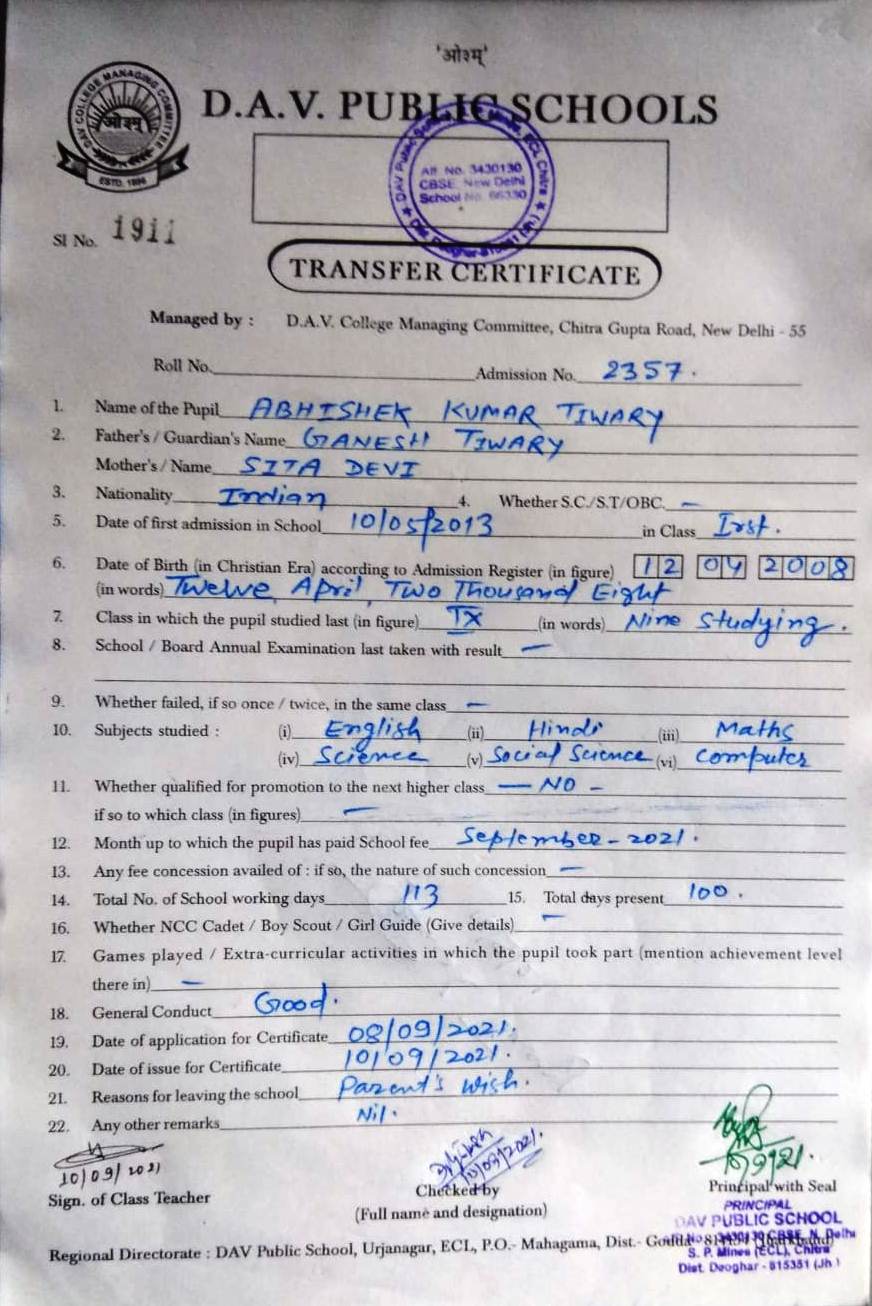 'ओ३म्'
DAV COLLEGE MANAGING COMMITTEE
ओ३म्
ESTD. 1886
D.A.V. PUBLIC SCHOOLS
Aff No. 3430130
CBSE, New Delhi
School No. 66330
DAV Public ECL Chitra
Dist. Deoghar-815351 (Jh.)
Sl No. 1911
TRANSFER CERTIFICATE
Managed by : D.A.V. College Managing Committee, Chitra Gupta Road, New Delhi - 55
Roll No. Admission No. 2357.
1. Name of the Pupil ABHISHEK KUMAR TIWARY
2. Father's / Guardian's Name GANESH TIWARY
Mother's / Name SITA DEVI
3. Nationality Indian 4. Whether S.C./S.T/OBC. —
5. Date of first admission in School 10/05/2013 in Class Irst.
6. Date of Birth (in Christian Era) according to Admission Register (in figure) 12 04 2008
(in words) Twelve, April, Two Thousand Eight
7. Class in which the pupil studied last (in figure) IX (in words) Nine Studying.
8. School / Board Annual Examination last taken with result —
9. Whether failed, if so once / twice, in the same class —
10. Subjects studied : (i) English (ii) Hindi (iii) Maths
(iv) Science (v) Social Science (vi) Computer
11. Whether qualified for promotion to the next higher class — NO –
if so to which class (in figures) —
12. Month up to which the pupil has paid School fee September - 2021.
13. Any fee concession availed of : if so, the nature of such concession —
14. Total No. of School working days 113 15. Total days present 100.
16. Whether NCC Cadet / Boy Scout / Girl Guide (Give details) —
17. Games played / Extra-curricular activities in which the pupil took part (mention achievement level
there in) —
18. General Conduct Good.
19. Date of application for Certificate 08/09/2021.
20. Date of issue for Certificate 10/09/2021.
21. Reasons for leaving the school Parent's wish.
22. Any other remarks Nil.
10/09/2021 10/09/2021.
Sign. of Class Teacher Checked by Principal with Seal
(Full name and designation)
PRINCIPAL
DAV PUBLIC SCHOOL
3430130 CBSE, N. Delhi
S. P. Mines (ECL), Chitra
Dist. Deoghar - 815351 (Jh.)
Regional Directorate : DAV Public School, Urjanagar, ECL, P.O.- Mahagama, Dist.- Godda